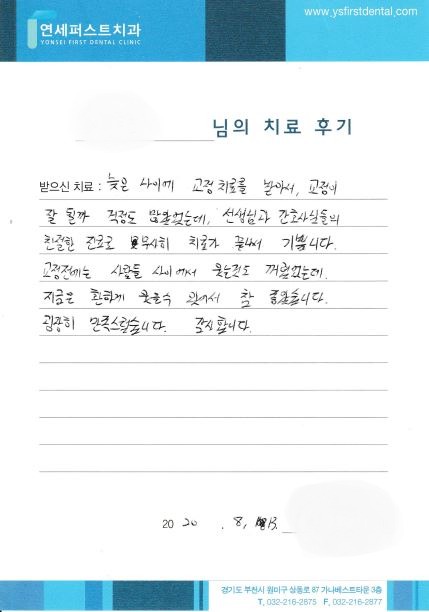 www.ysfirstdental.com
연세퍼스트치과
YONSEI FIRST DENTAL CLINIC
님의 치료 후기
받으신 치료 : 늦은 나이에 교정 치료를 받아서, 교정이
잘 될까 걱정도 많았었는데, 선생님과 간호사님들의
친절한 진료로 무사히 치료가 끝나서 기쁩니다.
교정전에는 사람들 사이에서 웃는것도 꺼렸었는데.
지금은 환하게 웃을수 있어서 참 좋습니다.
굉장히 만족스럽습니다. 감사합니다.
2020 . 8, 13.
경기도 부천시 원미구 상동로 87 가나베스트타운 3층
T. 032-216-2875 F. 032-216-2877